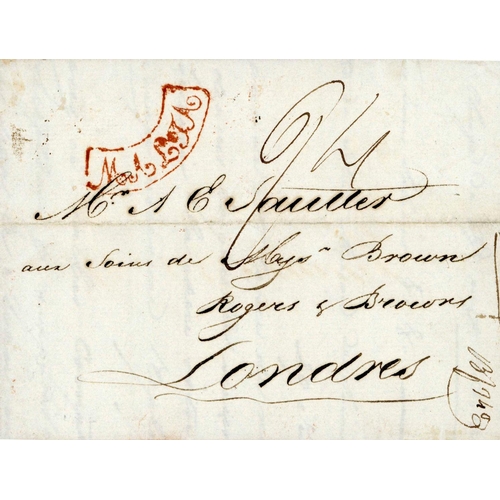 MALTA
Mr. A E Sautter
aux Soins de Messrs Brown
Rogers & Browns
Londres